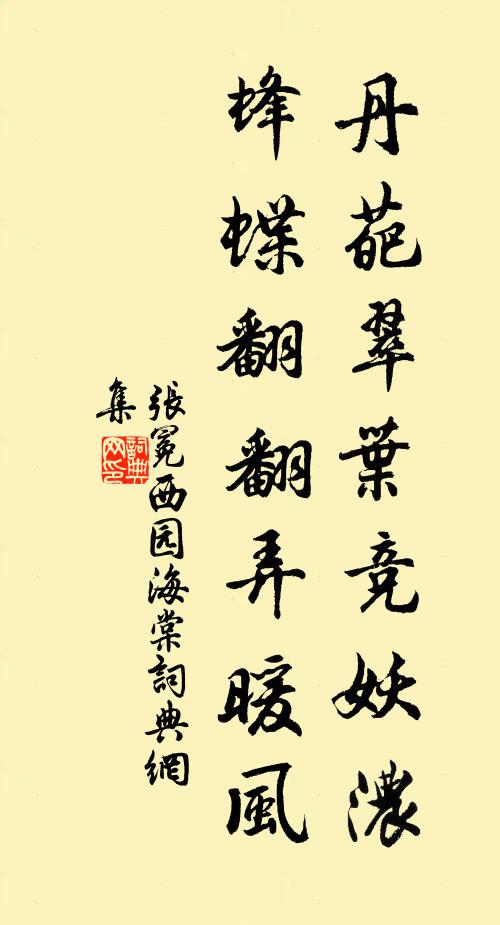 丹葩翠葉竞妖濃
蜂蝶翻翻弄暖風
張冕西园海棠詞典網
集
詞典网印